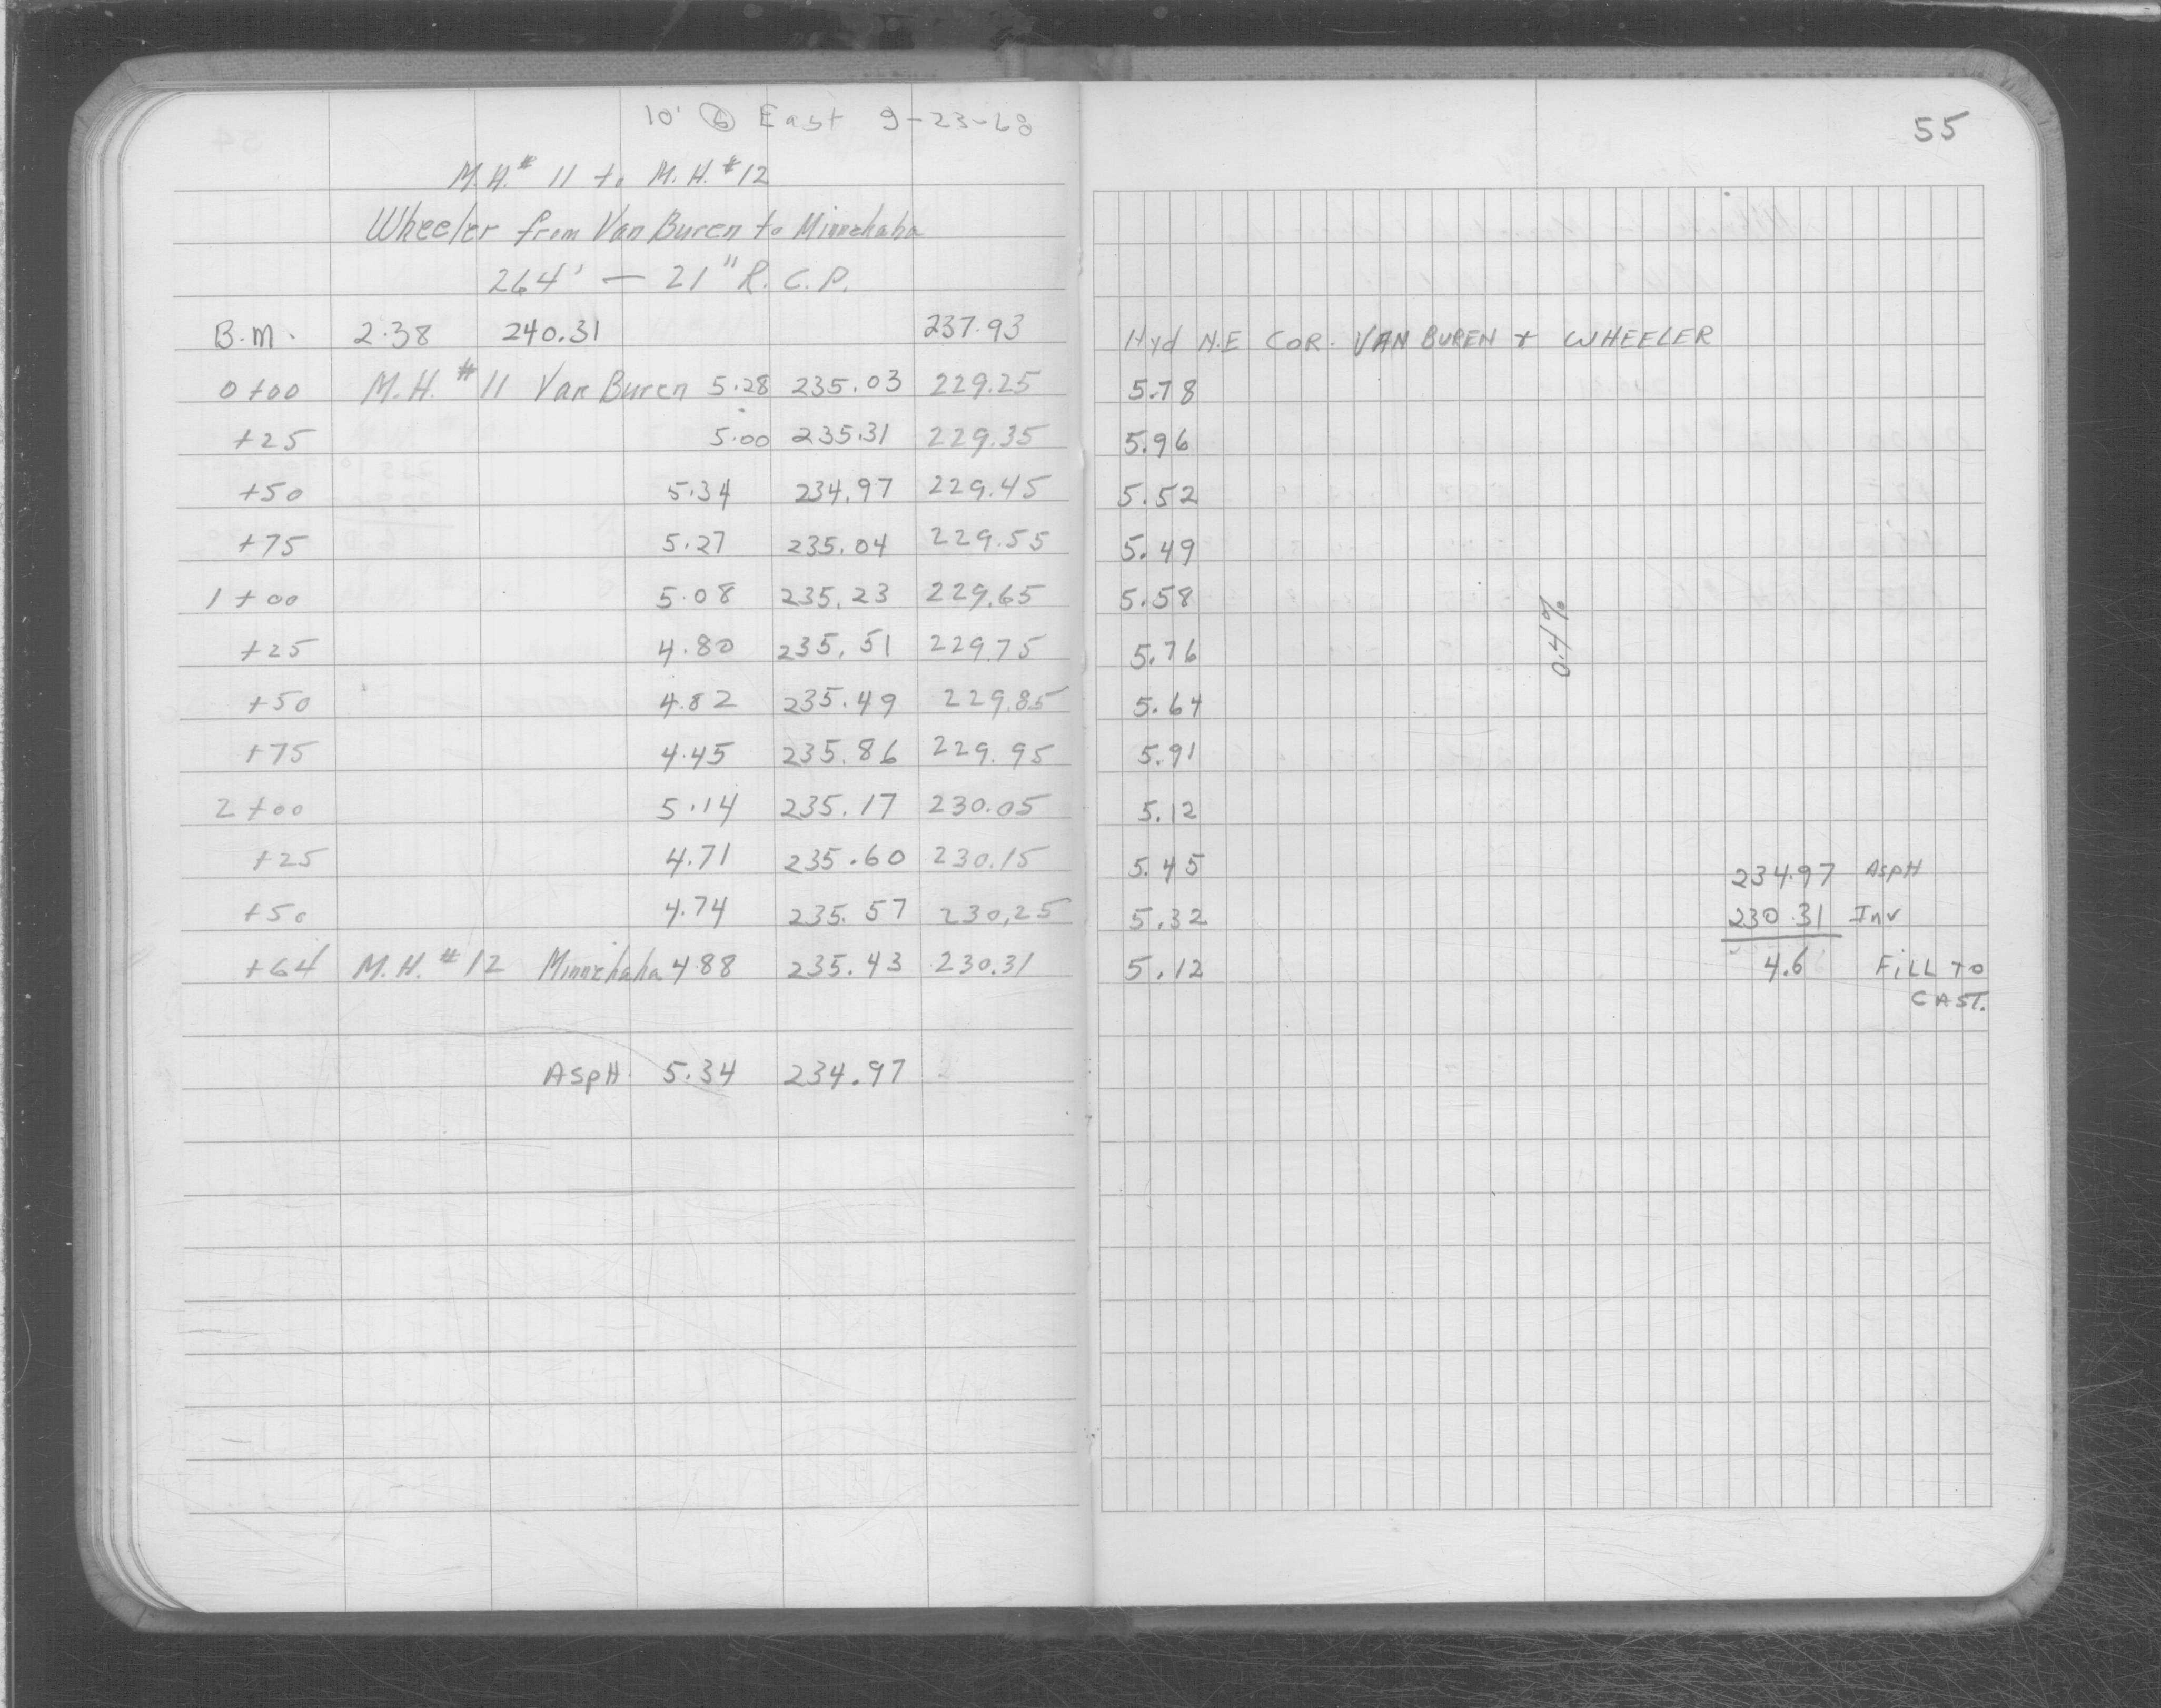 10' @ East 9-23-68
55
M.H.# 11 to M.H.#12
Wheeler from Van Buren to Minnehaha
264' — 21" R.C.P.
B.M. 2.38 240.31 237.93 Hyd N.E COR. VAN BUREN + WHEELER
0+00 M.H.#11 Van Buren 5.28 235.03 229.25 5.78
+25 5.00 235.31 229.35 5.96
+50 5.34 234.97 229.45 5.52
+75 5.27 235.04 229.55 5.49
1+00 5.08 235.23 229.65 5.58
+25 4.80 235.51 229.75 5.76
0.4%
+50 4.82 235.49 229.85 5.64
+75 4.45 235.86 229.95 5.91
2+00 5.14 235.17 230.05 5.12
+25 4.71 235.60 230.15 5.45 234.97 AspH
+50 4.74 235.57 230.25 5.32 230.31 Inv
+64 M.H.#12 Minnehaha 4.88 235.43 230.31 5.12 4.6 FiLL TO
CAST.
AspH. 5.34 234.97